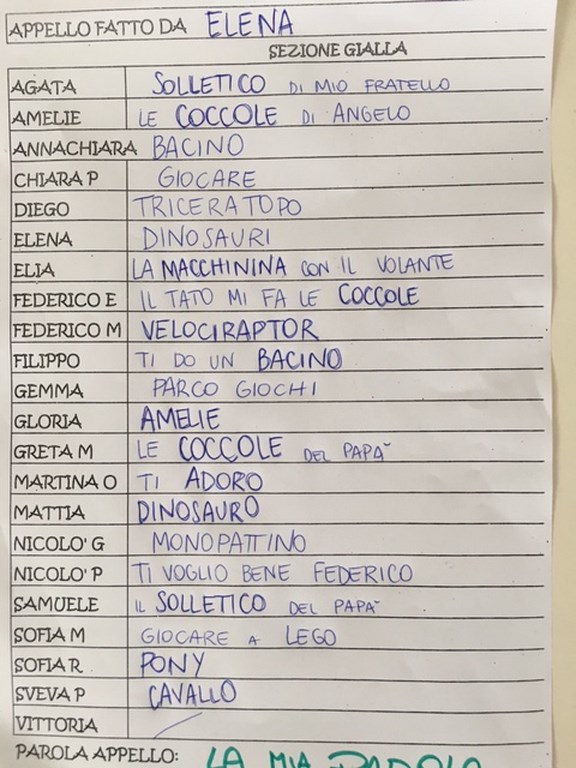 APPELLO FATTO DA ELENA
SEZIONE GIALLA
AGATA SOLLETICO DI MIO FRATELLO
AMELIE LE COCCOLE DI ANGELO
ANNACHIARA BACINO
CHIARA P GIOCARE
DIEGO TRICERATOPO
ELENA DINOSAURI
ELIA LA MACCHININA CON IL VOLANTE
FEDERICO E IL TATO MI FA LE COCCOLE
FEDERICO M VELOCIRAPTOR
FILIPPO TI DO UN BACINO
GEMMA PARCO GIOCHI
GLORIA AMELIE
GRETA M LE COCCOLE DEL PAPA'
MARTINA O TI ADORO
MATTIA DINOSAURO
NICOLO' G MONOPATTINO
NICOLO' P TI VOGLIO BENE FEDERICO
SAMUELE IL SOLLETICO DEL PAPA'
SOFIA M GIOCARE A LEGO
SOFIA R PONY
SVEVA P CAVALLO
VITTORIA
PAROLA APPELLO: LA MIA PAROLA